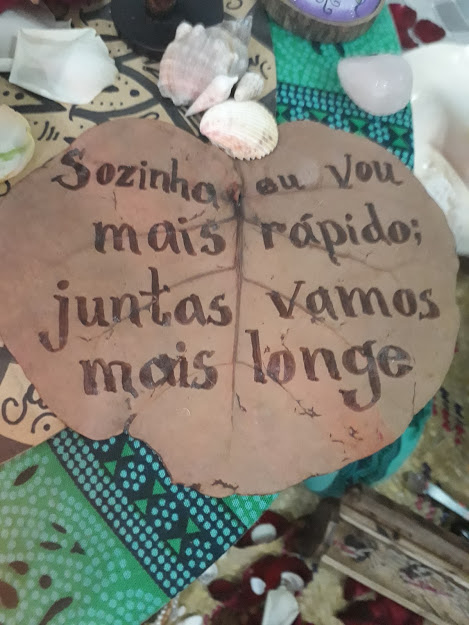 Sozinha eu vou
mais rápido;
juntas vamos
mais longe